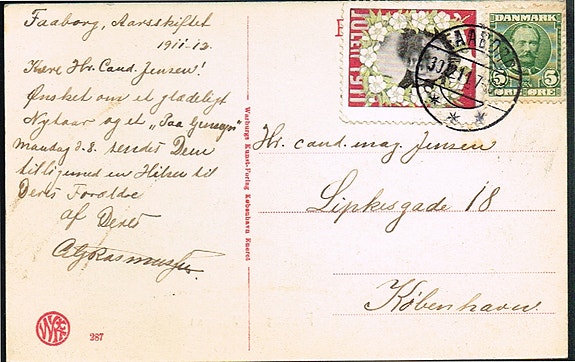 Faaborg, Aarsskiftet
1911-12.
Kære Hr. Cand. Jensen!
Ønsket om et glædeligt
Nytaar og et „Paa Gensyn"
mandag d. 8. sendes Dem
tilligemed en Hilsen til
Deres Forældre
af Deres
Rasmussen.
287
Warburgs Kunst-Forlag København Eneret
JULEN 1911
FAABORG
30.12.11.
DANMARK
5 5
ØRE ØRE
Hr. cand. mag. Jensen
Lipkesgade 18
København.